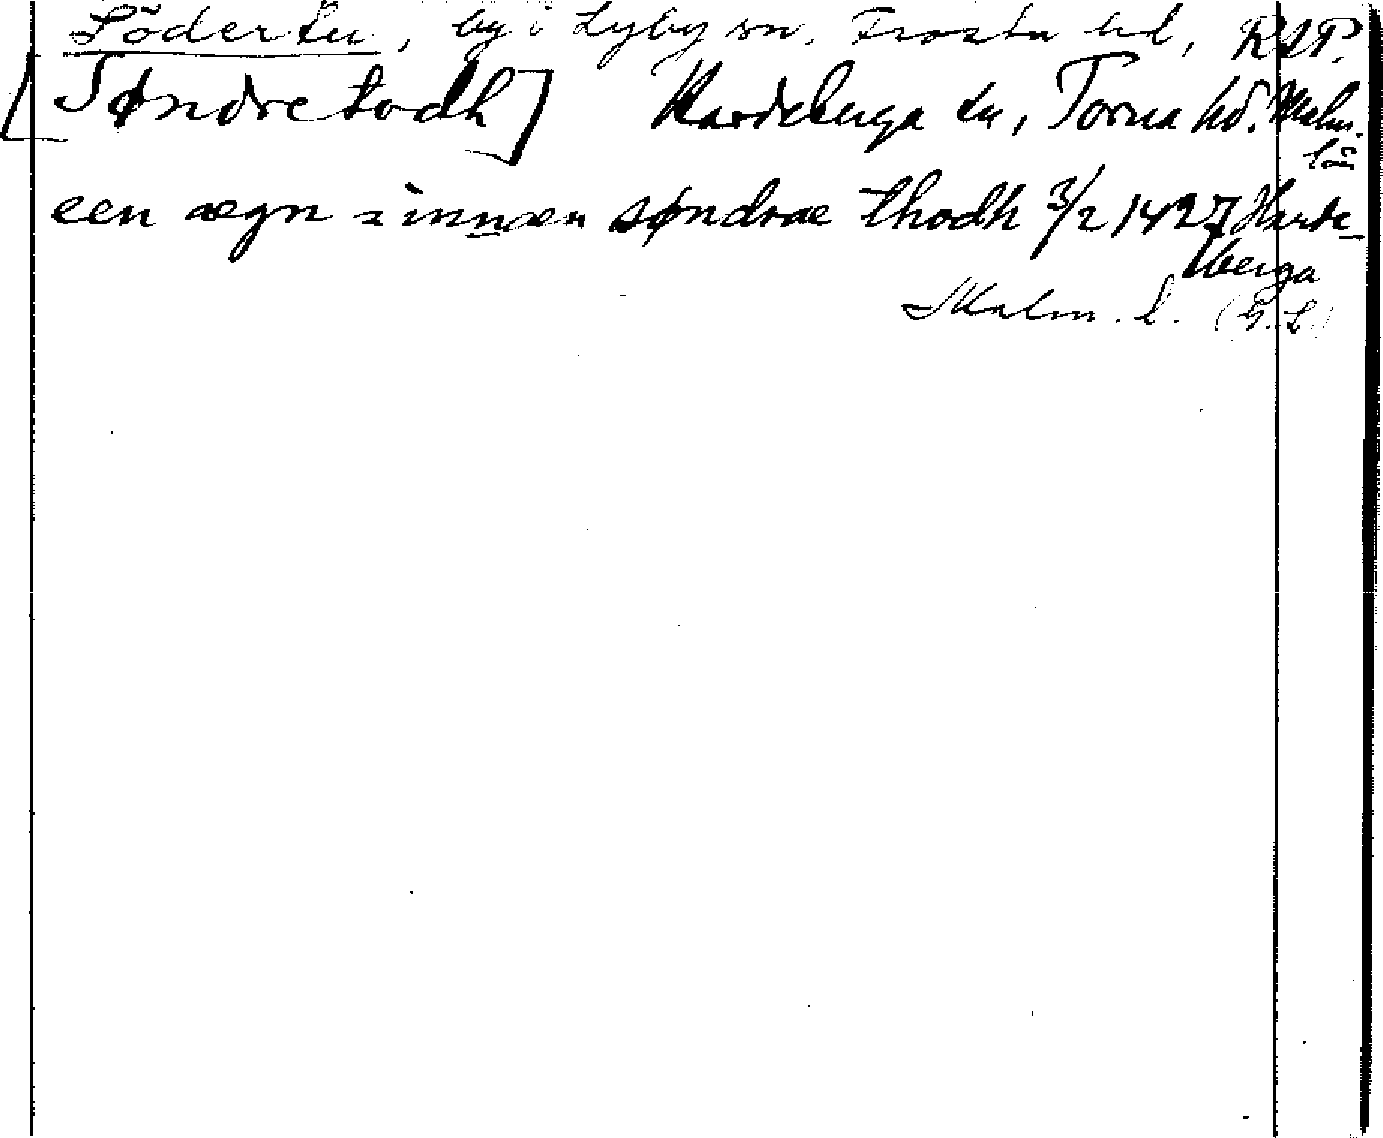 Södertu, by i Lyby sn, Frosta hd, RSP.
[Søndretodh] Hardeberga sn, Torna hd. Malm. län
een ægn i innæn søndræ thodh 3/2 1427 Harde-
berga
Malm. l. (G.L.)